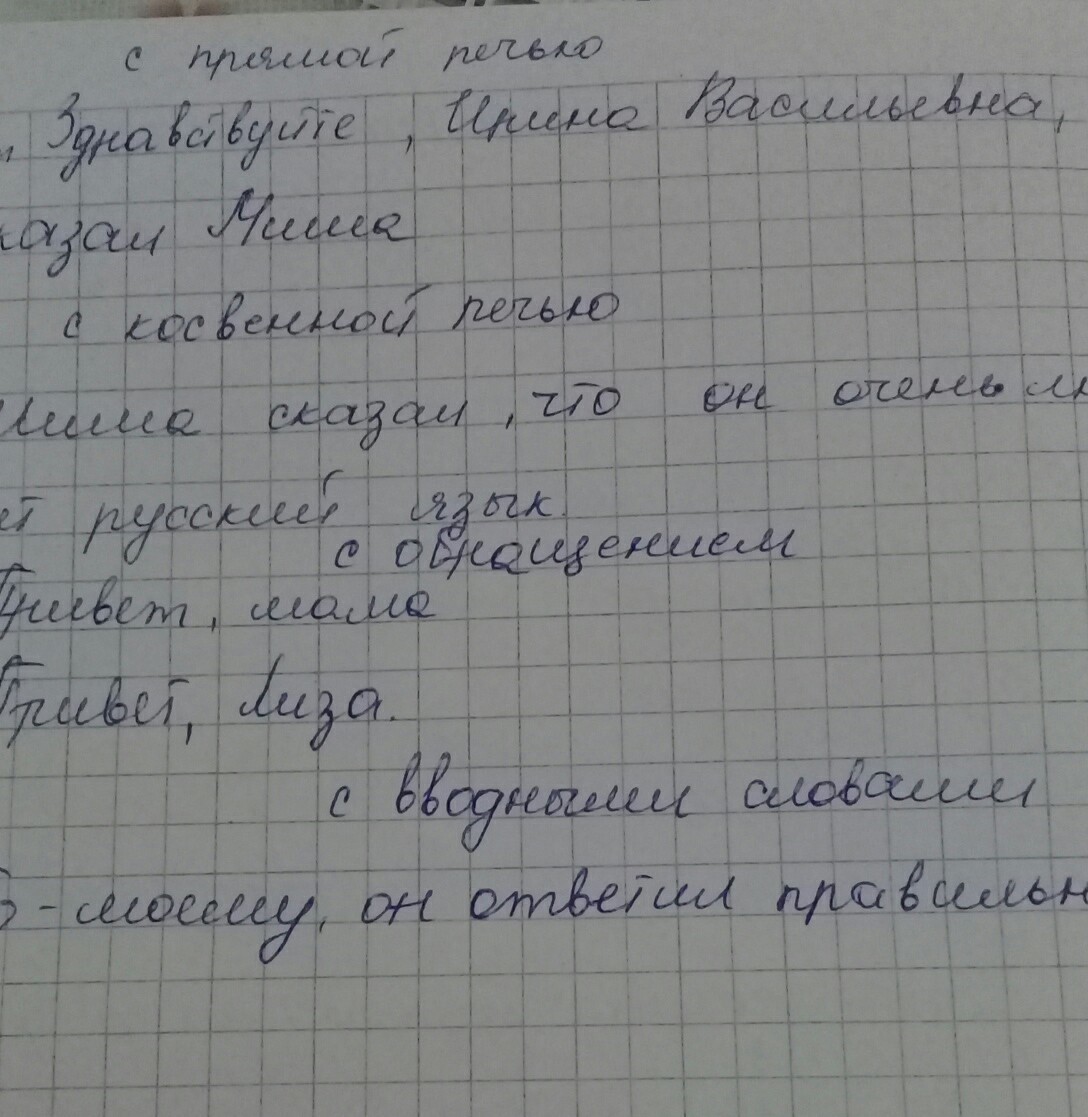 с прямой речью
„ Здравствуйте, Ирина Васильевна,
казал Миша
с косвенной речью
Миша сказал, что он очень лю
ет русский язык.
с обращением
Привет, мама
Привет, Лиза.
с вводными словами
о-моему, он ответил правильн